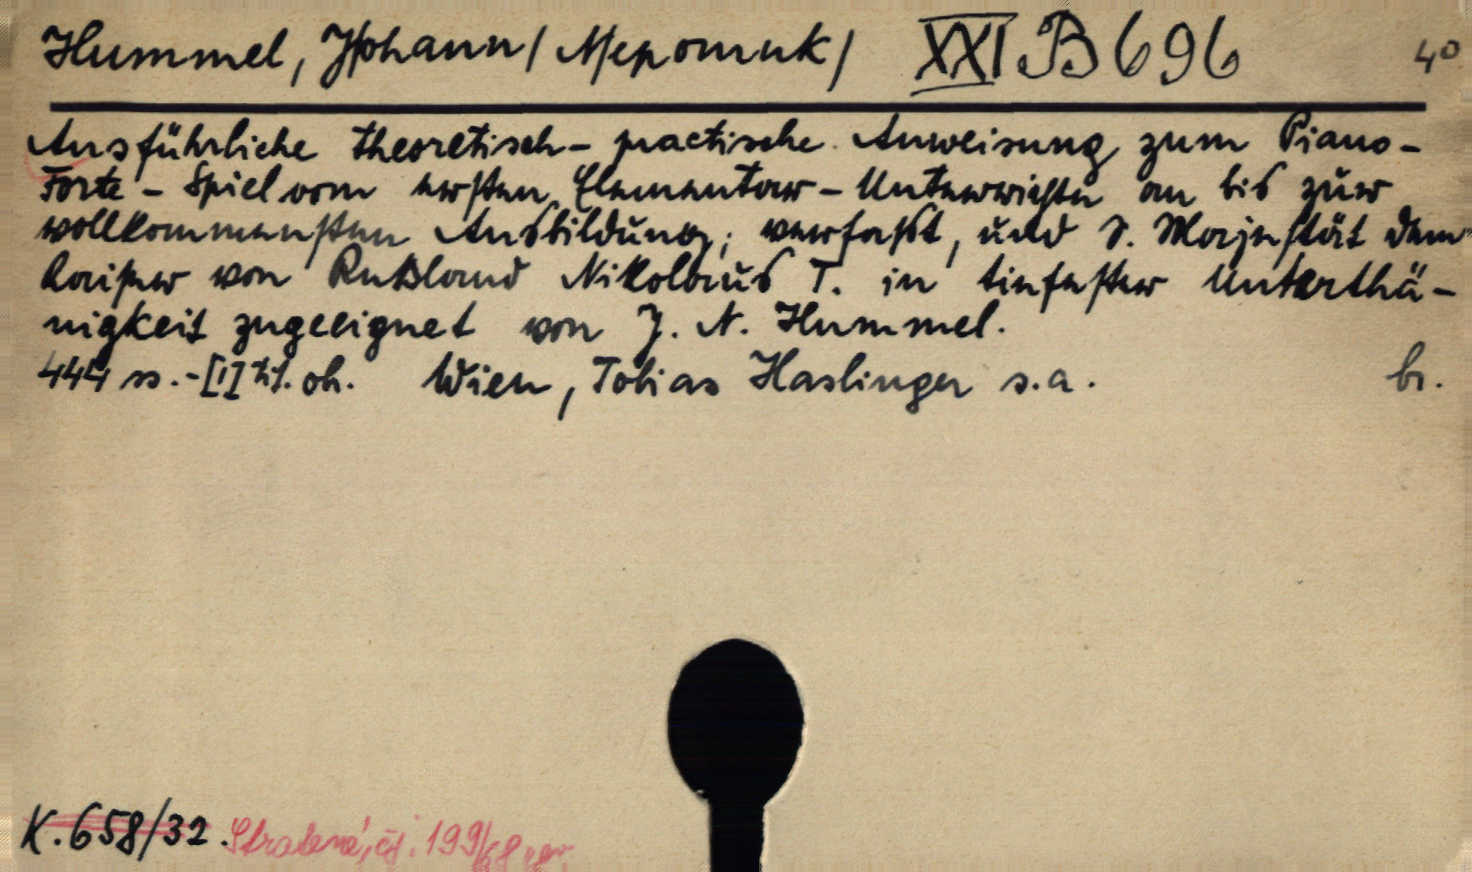 Hummel, Johann / Nepomuk / XXI B 696 4°
Ausführliche theoretisch-practische Anweisung zum Piano-
Forte-Spiel vom ersten Elementar-Unterrichte an bis zur
vollkommensten Ausbildung; verfaßt, und S. Majestät dem
Kaiser von Rußland Nikolaus I. in tiefster Unterthä-
nigkeit zugeeignet von J. N. Hummel.
444 ss.-[1] tit. ob. Wien, Tobias Haslinger s.a. br.
K. 658/32. Stratené, čj. 199/68